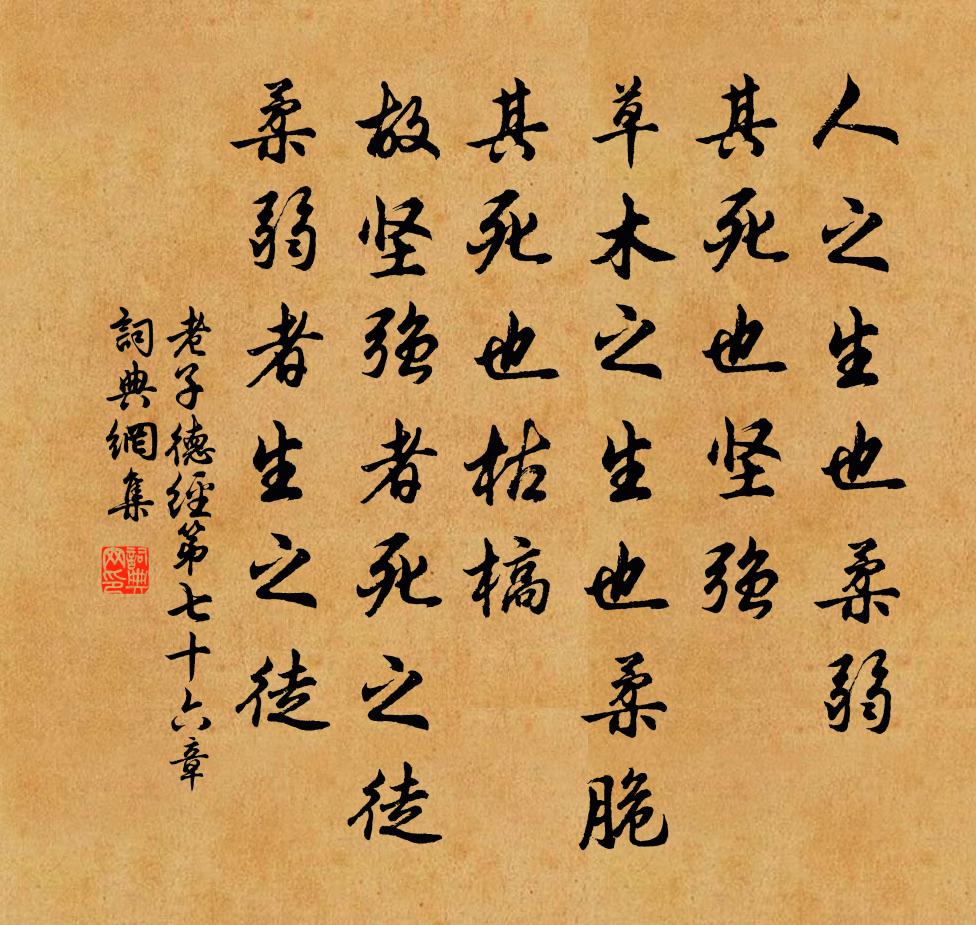 人之生也柔弱
其死也坚强
草木之生也柔脆
其死也枯槁
故坚强者死之徒
柔弱者生之徒
老子德經第七十六章
詞典網集
詞典
网印